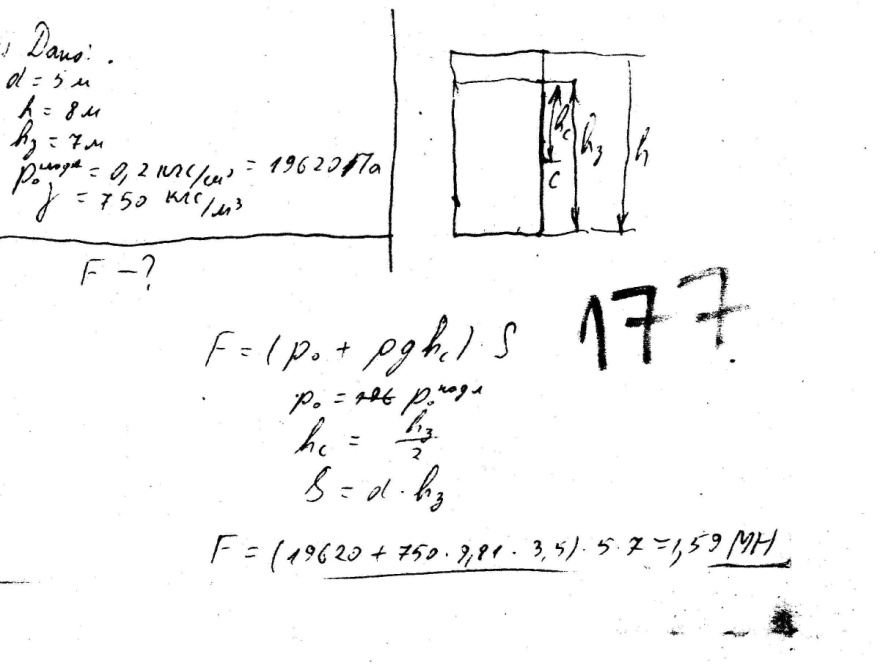 Дано:
d = 5 м
h = 8 м
h₃ = 7 м
p₀ = 0,2 кгс/см² = 19620 Па
γ = 750 кгс/м³
F - ?
hc
h₃
h
C
177
F = (p₀ + ρghc) · S
p₀ = p₀
hc = h₃/2
S = d · h₃
F = (19620 + 750 · 9,81 · 3,5) · 5 · 7 = 1,59 МН